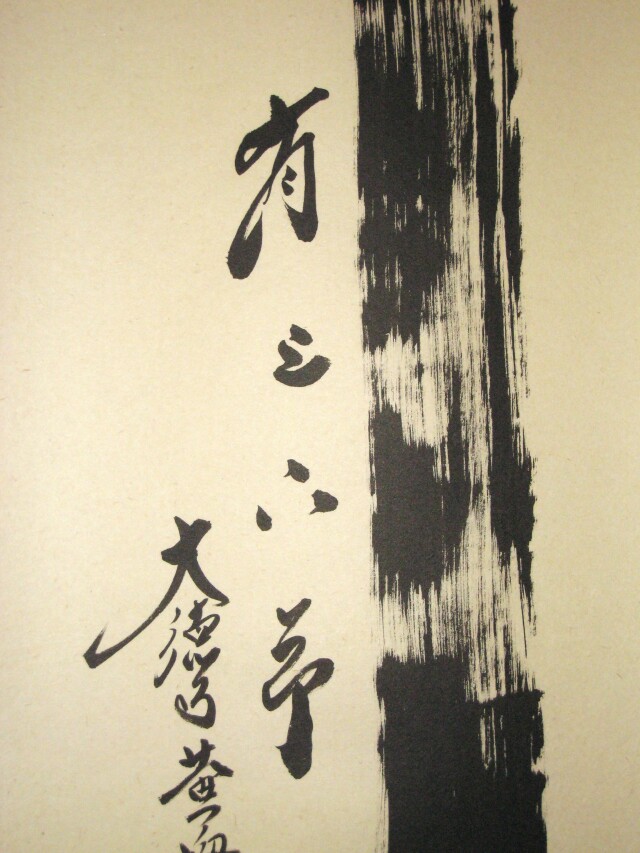 有上下節
大徳寺